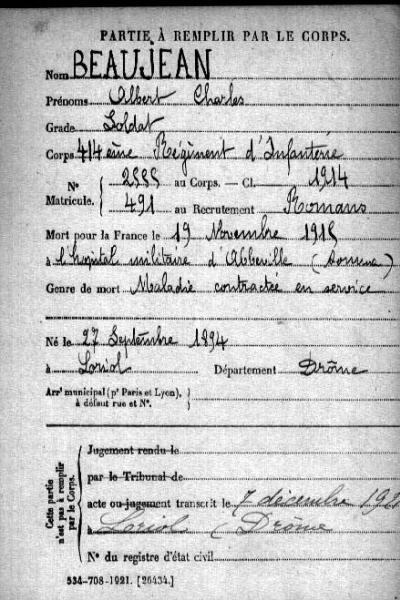 PARTIE À REMPLIR PAR LE CORPS.
Nom BEAUJEAN
Prénoms Albert Charles
Grade Soldat
Corps 414ème Régiment d'Infanterie
N° Matricule. { au Corps. — Cl. 1914
491 au Recrutement Romans
Mort pour la France le 19 Novembre
à l'hopital militaire d'Abbeville (Somme)
Genre de mort Maladie contractée en service
Né le 27 Septembre 1894
à Loriol Département Drôme
Arrt municipal (pr Paris et Lyon), à défaut rue et N°. }
Cette partie n'est pas à remplir par le Corps. {
Jugement rendu le
par le Tribunal de
acte ou jugement transcrit le 7 décembre
à Loriol (Drôme
N° du registre d'état civil
534-708-1921. [26434.]